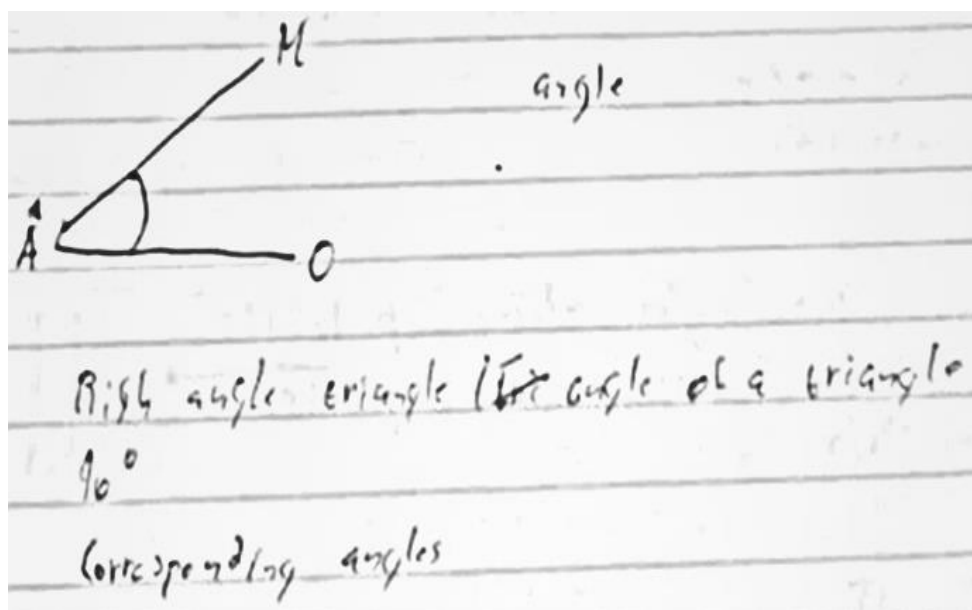 M
angle
Â
O
Righ angle triangle ( angle of a triangle
90°
Corresponding angles